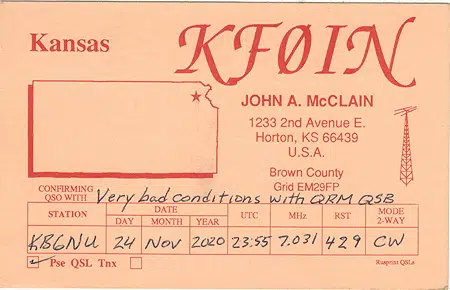 Kansas
KFØIN
JOHN A. McCLAIN
1233 2nd Avenue E.
Horton, KS 66439
U.S.A.
Brown County
Grid EM29FP
CONFIRMING QSO WITH Very bad conditions with QRM QSB
STATION DATE UTC MHz RST MODE 2-WAY
DAY MONTH YEAR
KB6NU 24 Nov 2020 23:55 7.031 429 CW
Pse QSL Tnx
Rusprint QSLs